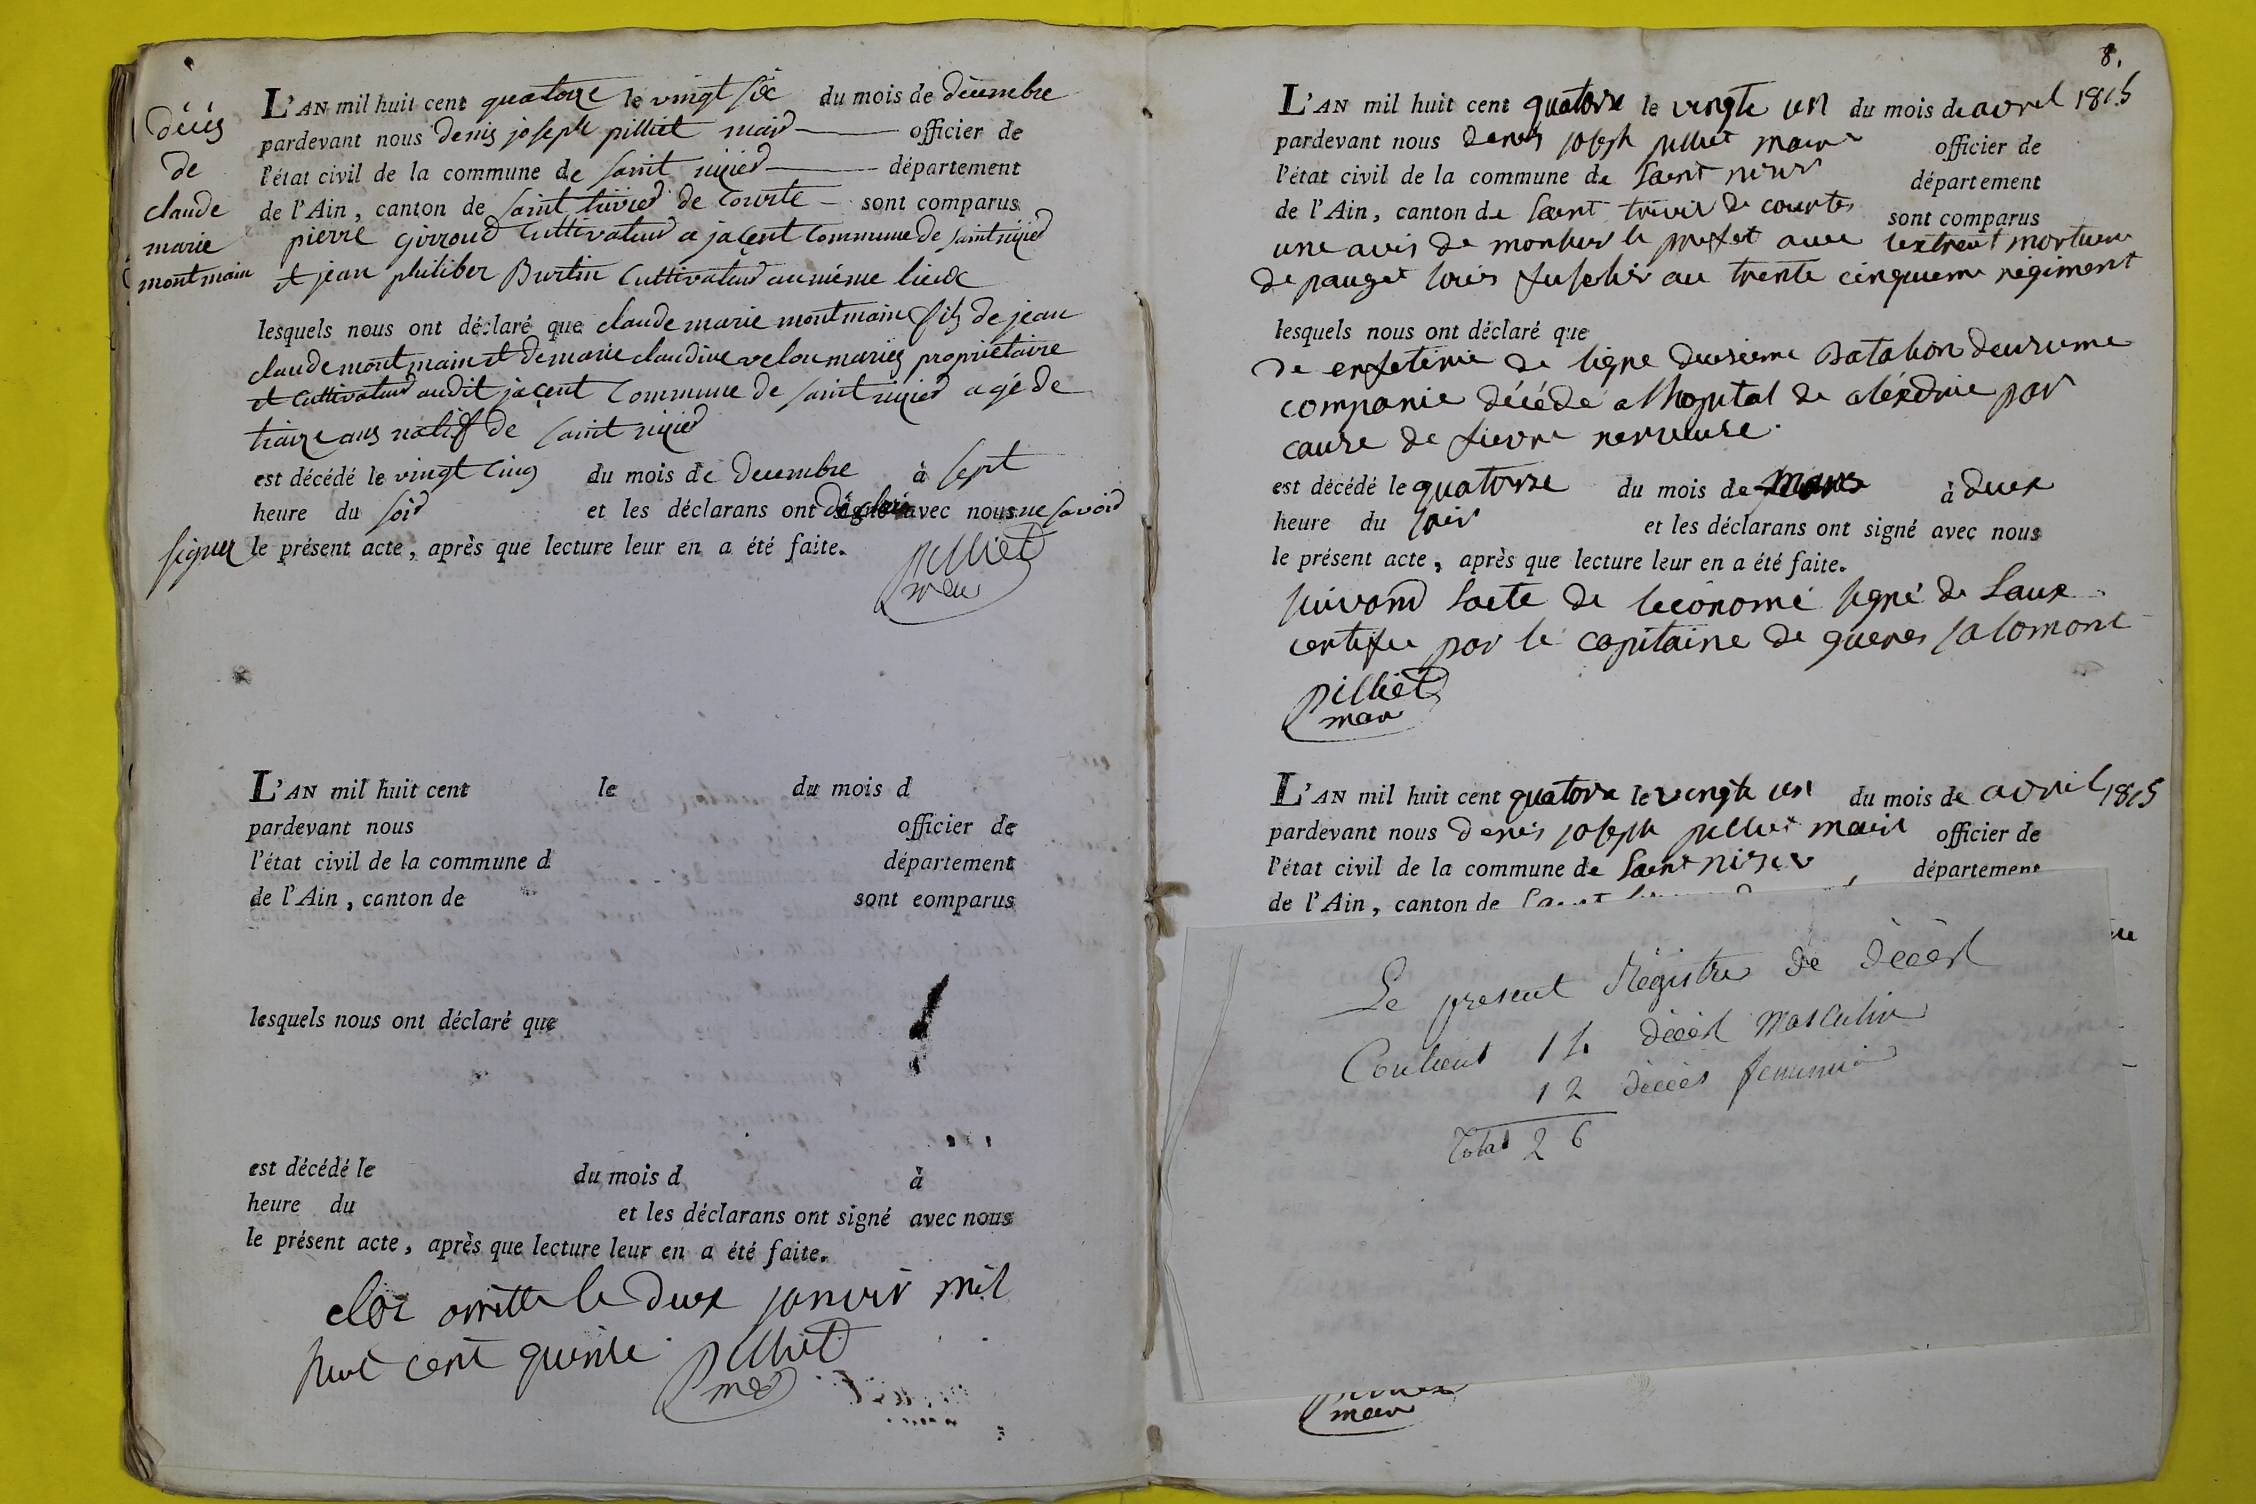 décès
de
claude
marie
montmain
L'AN mil huit cent quatorze le vingt six du mois de décembre
pardevant nous denis joseph pilliet maire officier de
l'état civil de la commune de saint nizier département
de l'Ain, canton de saint trivier de courte sont comparus
pierre girroud cultivateur a jaçent commune de saint nizier
et jean philiber Burtin cultivateur au même lieux
lesquels nous ont déclaré que claude marie montmain fils de jean
claude montmain et de marie claudine velou mariés propriétaire
et cultivateur audit jaçent commune de saint nizier agé de
traize ans natif de saint nizier
est décédé le vingt cinq du mois de decembre à sept
heure du soir et les déclarans ont déclaré avec nous ne savoir
signer le présent acte, après que lecture leur en a été faite.
pilliet
maire
L'AN mil huit cent le du mois d
pardevant nous officier de
l'état civil de la commune d département
de l'Ain, canton de sont eomparus
lesquels nous ont déclaré que
est décédé le du mois d à
heure du et les déclarans ont signé avec nous
le présent acte, après que lecture leur en a été faite.
clos arrette le deux janvier mil
huit cent quinse
pilliet
8.
L'AN mil huit cent quatorze le vingte un du mois de avril 1815
pardevant nous denis joseph pilliet maire officier de
l'état civil de la commune de saint nizier département
de l'Ain, canton de saint trivier de courtes sont comparus
une avis de monsieur le prefet avec lextrait mortuere
de pauget louis fuselier au trente cinquieme regiment
lesquels nous ont déclaré que
de enfeterie de ligne deusieme Batalion deusieme
companie décédé a lhopital de aléxdrie par
cause de fievre nerveuse.
est décédé le quatorze du mois de mars à deux
heure du soir et les déclarans ont signé avec nous
le présent acte, après que lecture leur en a été faite.
suivand lacte de léconome signé de Laux
certifie par le capitaine de gueres salomont
pilliet
maire
L'AN mil huit cent quatorze le vingte un du mois de avril 1815
pardevant nous denis joseph pilliet maire officier de
l'état civil de la commune de saint nizier département
de l'Ain, canton de saint
Le present Régistre de décès
Contient 14 décès masculin
12 décès feminin
Total 26
maire